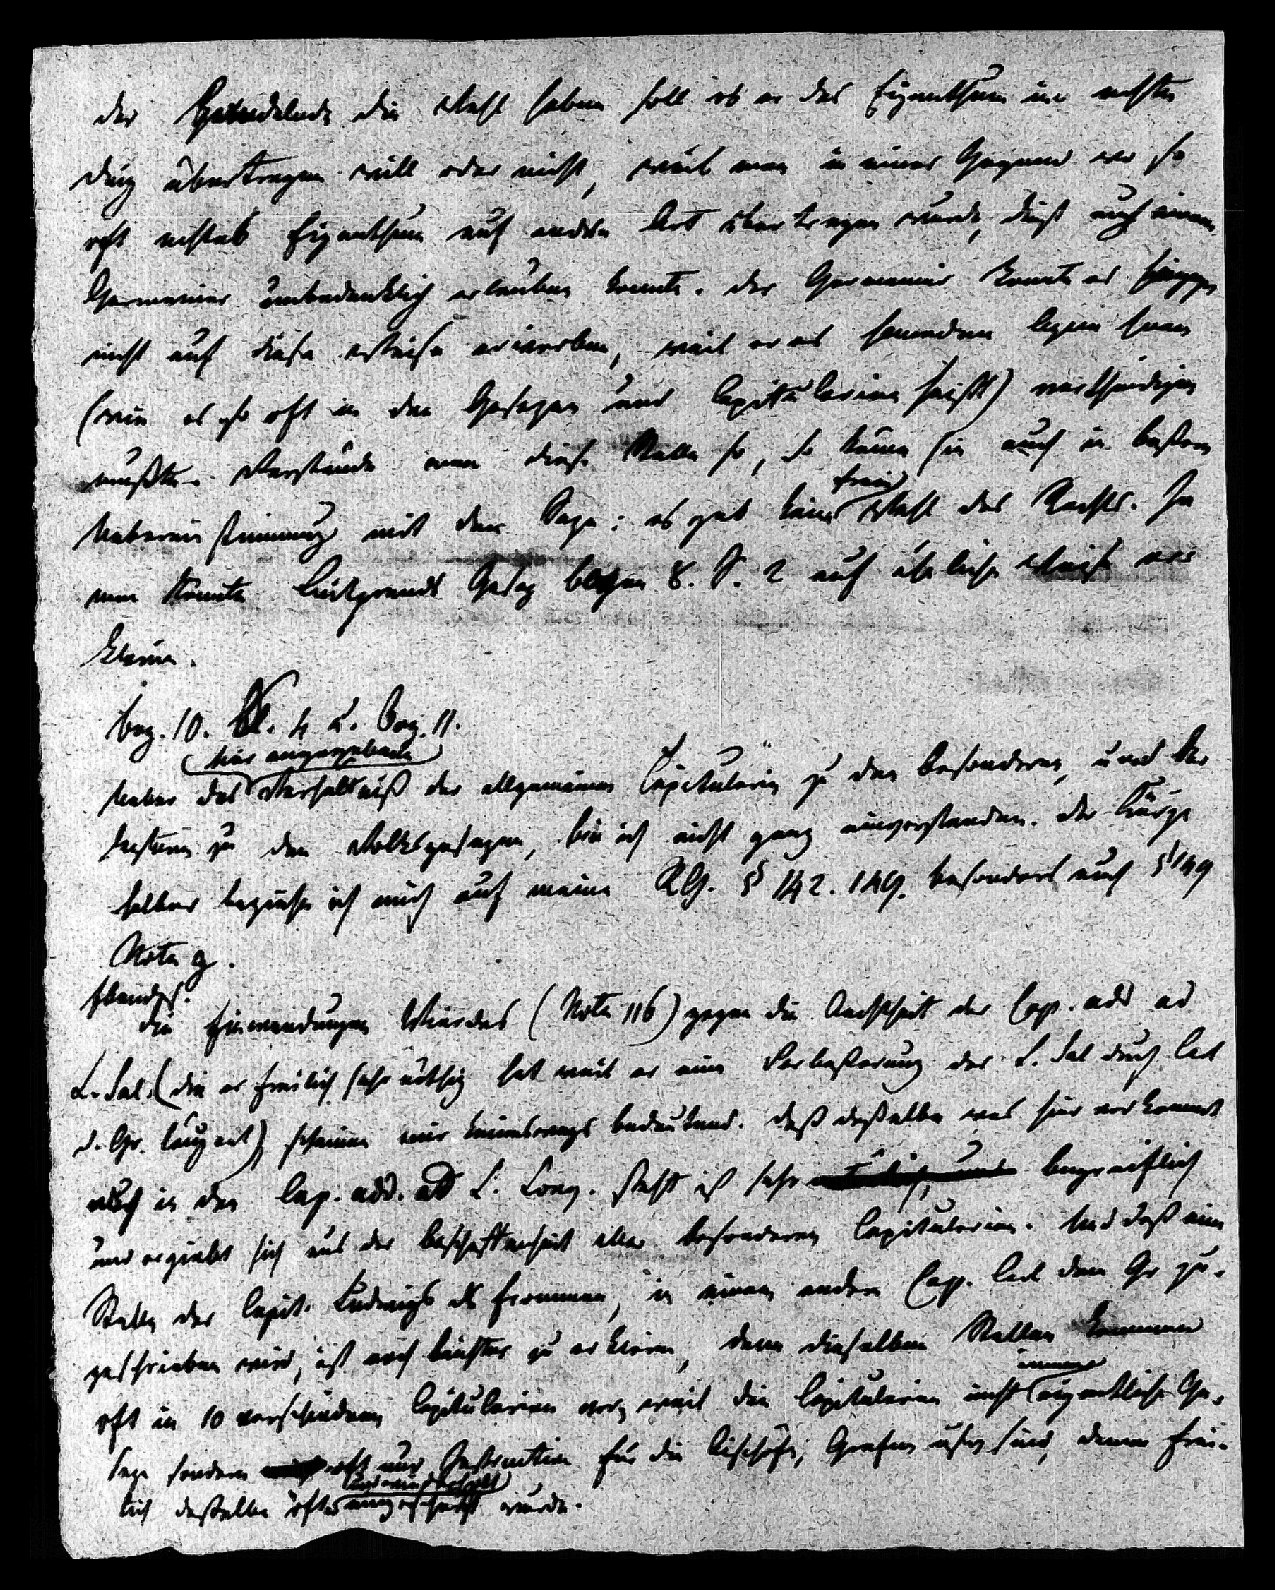 der Handelnde die Wahl haben soll ob er das Eigenthum im ersten
Ding übertragen will oder nicht, weil man in einer Gegend wo so
oft ächtes Eigenthum auf andere Art übertragen wurde, dieß auch einem
Germanier unbedenklich erlauben konnte. Der Germanier konnte es
nicht auf diese Weise erwerben, weil er es secundum legem suam
(wie es so oft in den Gesetzen und Capitularien heißt) vertheidigen
mußte. Verstünde man diese Stelle so, so käme sie auch in bessere
Uebereinstimmung mit dem Satze: es gab keine freie Wahl des Rechts. So
man könnte Luitprands Gesetz 8. S. 2 auf ähnliche Weise er
klären.
Bog. 10. Bl. 4 u. Bog. 11.
Ueber das hier angegebene Verhältniß der allgemeinen Capitularien zu den besonderen, und der
letztern zu den Volksgesetzen, bin ich nicht ganz einverstanden. Der Kürze
halber beziehe ich mich auf meine RG. § 142. 149. besonders auch § 149
Note g.
Ebendas.
Die Einwendungen Wiardas (Note 116) gegen die Aechtheit der Cap. add ad
L. Sal. (die er freilich sehr nöthig hat weil er eine Verbesserung der L. Sal durch Carl
d. Gr. läugnet) scheinen mir keineswegs bedeutend. Daß dasselbe was hier vorkommt
auch in den Cap. add. ad L. Long. steht ist sehr begreiflich
und ergiebt sich aus der Beschaffenheit aller besonderen Capitularien. Und daß eine
Stelle der Capit. Ludwigs des frommen, in einem andern Cap. Carl dem Gr zu-
geschrieben wird, ist auch leichter zu erklären, denn dieselben Stellen kommen
oft in 10 verschiedenen Capitularien vor, weil die Capitularien nicht immer eigentliche Ge-
setze sondern oft nur Instruction für die Bischöfe, Grafen usw sind, denen frei-
lich dasselbe öfter eingeschärft wurde.